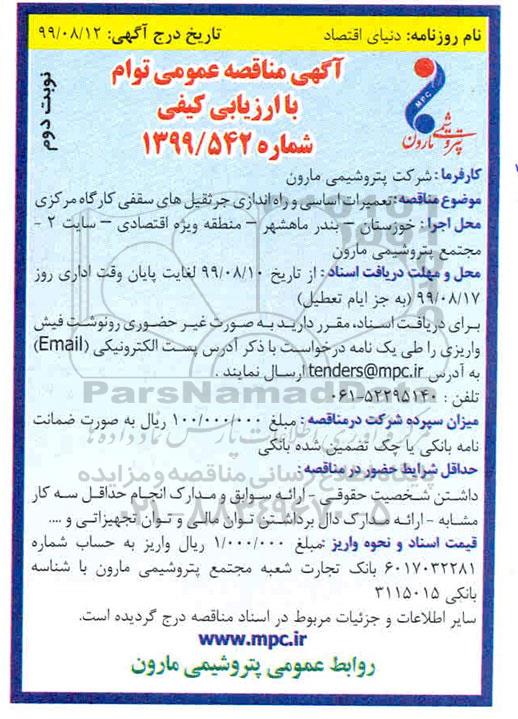 نام روزنامه: دنیای اقتصاد
تاریخ درج آگهی: ۹۹/۰۸/۱۲
MPC
پتروشیمی مارون
نوبت دوم
آگهی مناقصه عمومی توام
با ارزیابی کیفی
شماره ۱۳۹۹/۵۴۲
کارفرما: شرکت پتروشیمی مارون
موضوع مناقصه: تعمیرات اساسی و راه اندازی جرثقیل های سقفی کارگاه مرکزی
محل اجرا: خوزستان – بندر ماهشهر – منطقه ویژه اقتصادی – سایت ۲ -
مجتمع پتروشیمی مارون
محل و مهلت دریافت اسناد: از تاریخ ۹۹/۰۸/۱۰ لغایت پایان وقت اداری روز
۹۹/۰۸/۱۷ (به جز ایام تعطیل)
برای دریافت اسناد، مقرر دارید به صورت غیر حضوری رونوشت فیش
واریزی را طی یک نامه درخواست با ذکر آدرس پست الکترونیکی (Email)
به آدرس tenders@mpc.ir ارسال نمایند.
تلفن: ۵۲۲۹۵۱۴۰-۰۶۱
میزان سپرده شرکت درمناقصه: مبلغ ۱۰۰/۰۰۰/۰۰۰ ریال به صورت ضمانت
نامه بانکی یا چک تضمین شده بانکی
حداقل شرایط حضور در مناقصه:
داشتن شخصیت حقوقی - ارائه سوابق و مدارک انجام حداقل سه کار
مشابه - ارائه مدارک دال برداشتن توان مالی و توان تجهیزاتی و ....
قیمت اسناد و نحوه واریز: مبلغ ۱/۰۰۰/۰۰۰ ریال واریز به حساب شماره
۶۰۱۷۰۳۲۲۸۱ بانک تجارت شعبه مجتمع پتروشیمی مارون با شناسه
بانکی ۳۱۱۵۰۱۵
سایر اطلاعات و جزئیات مربوط در اسناد مناقصه درج گردیده است.
www.mpc.ir
روابط عمومی پتروشیمی مارون
ParsNamadData
پایگاه اطلاع رسانی مناقصه و مزایده